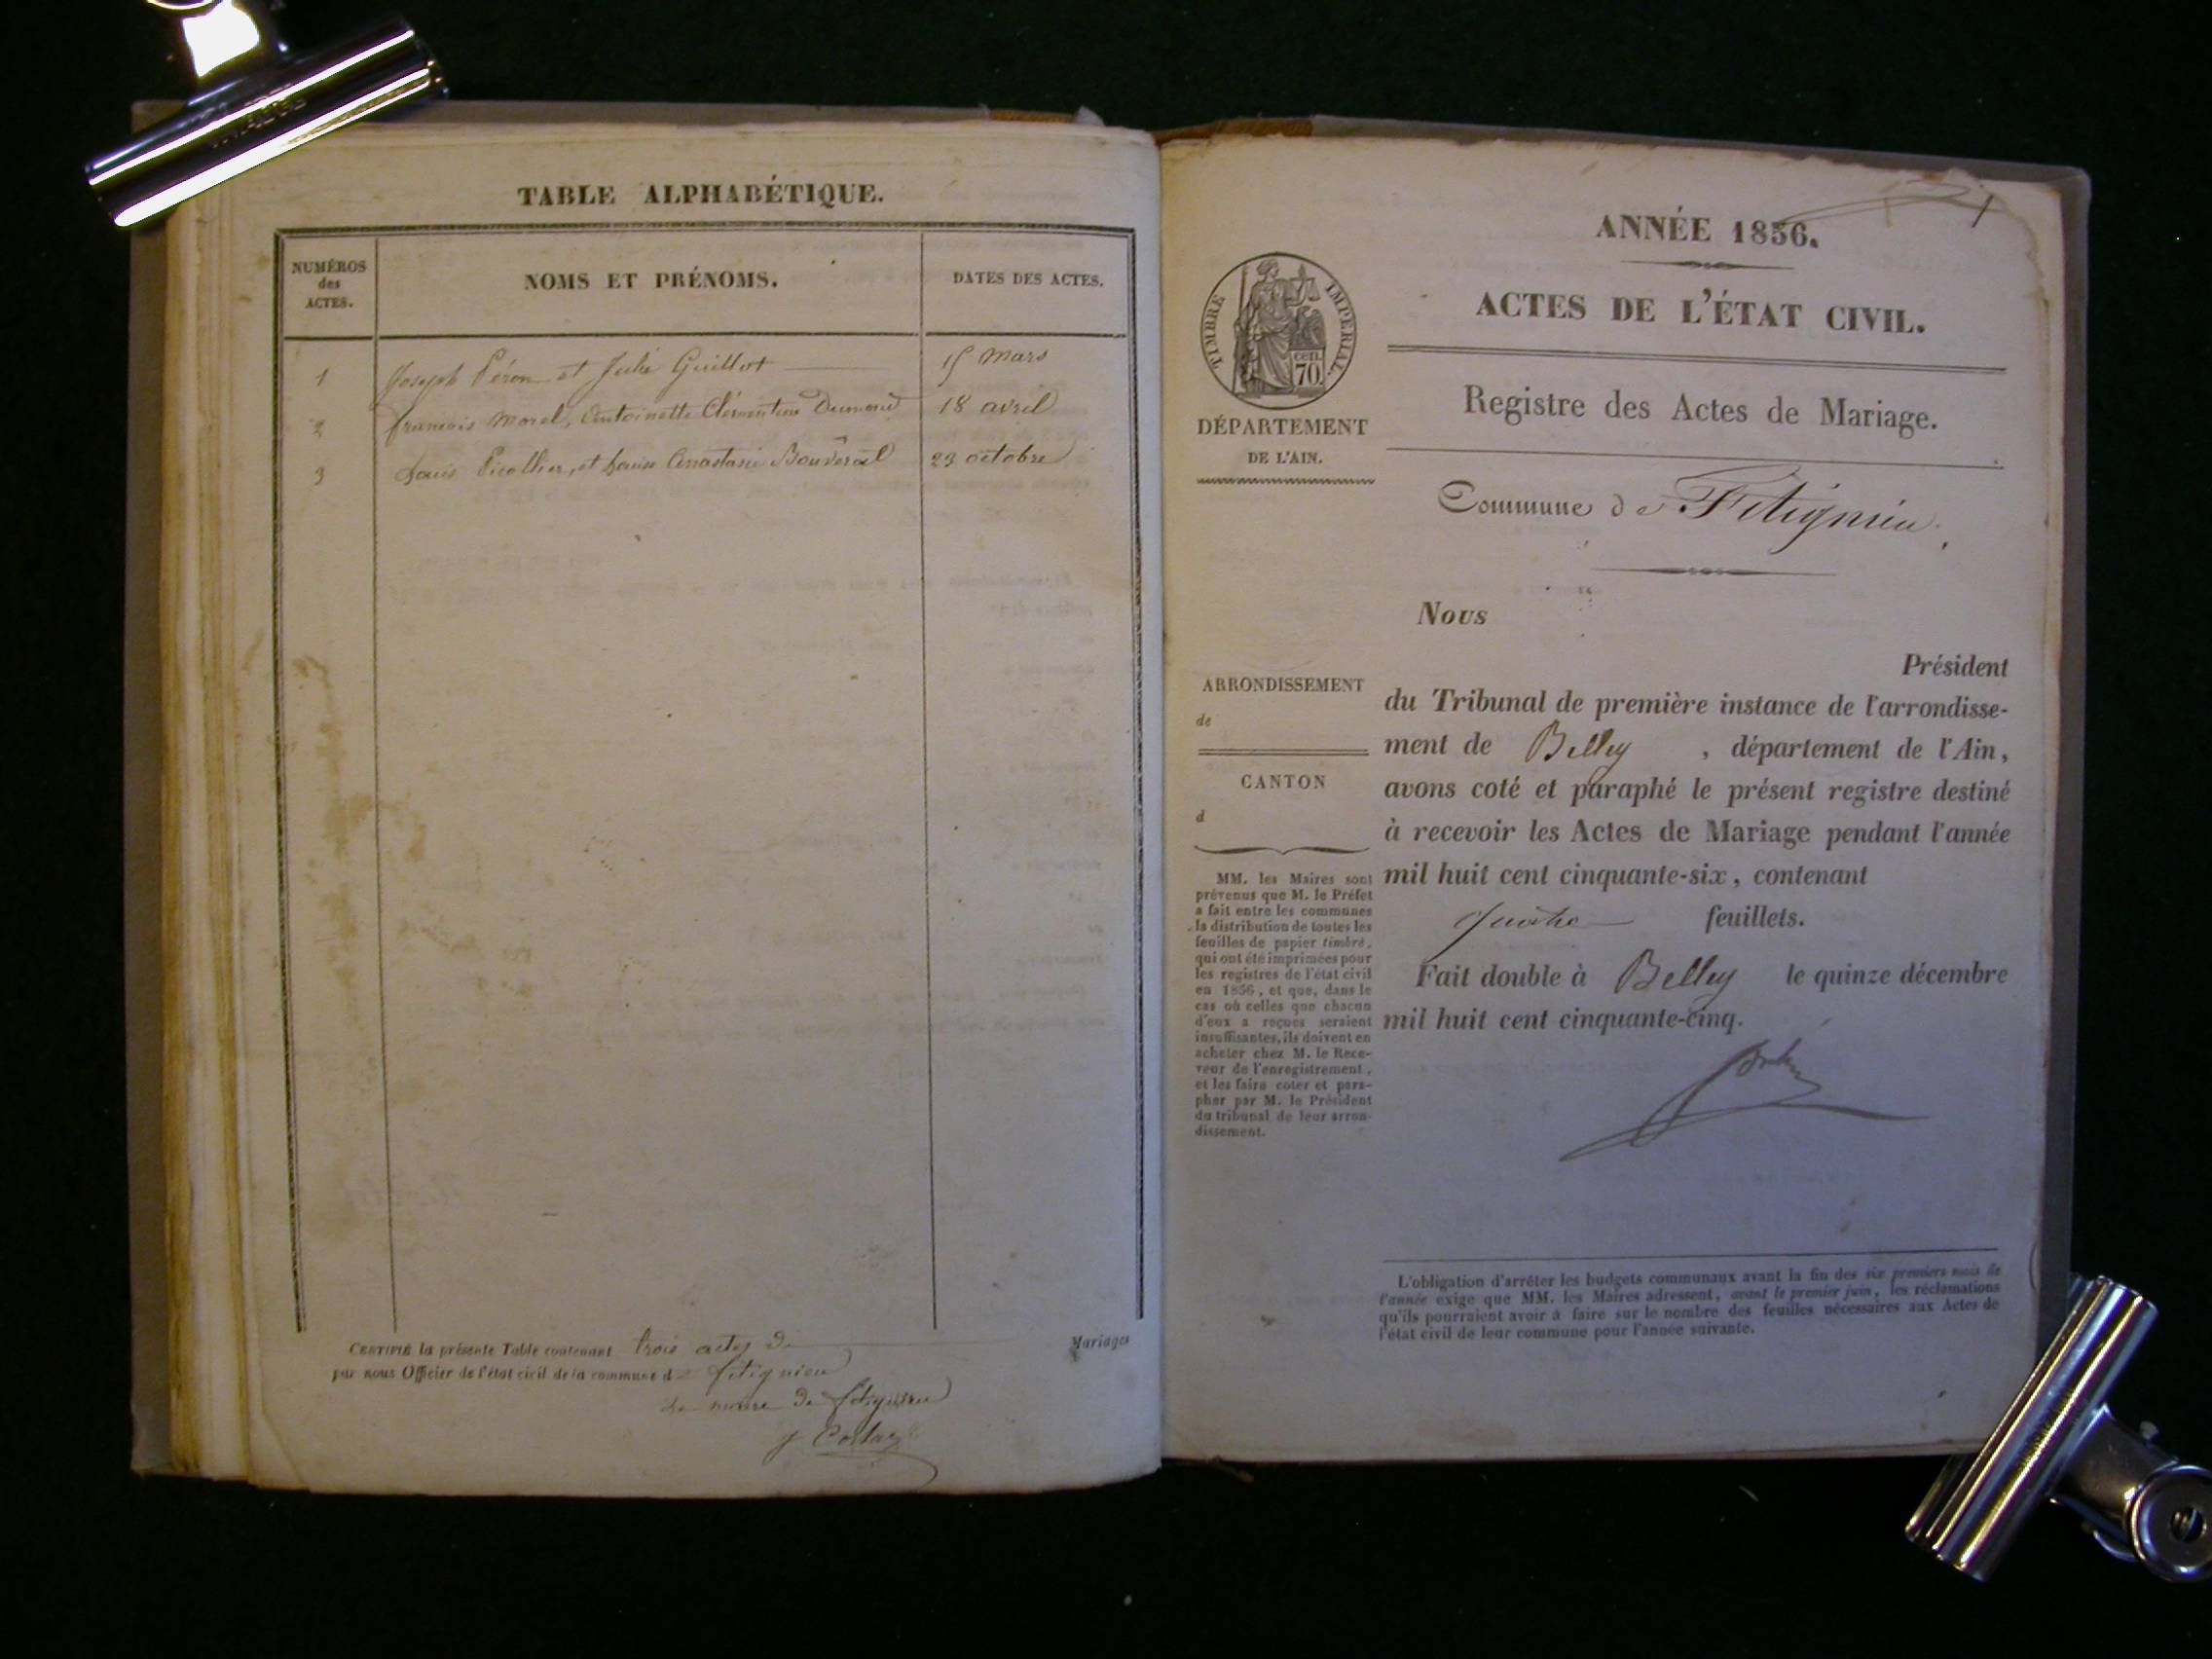 TABLE ALPHABÉTIQUE.
NUMÉROS
des
ACTES.
NOMS ET PRÉNOMS.
DATES DES ACTES.
1 Joseph Péron et Julie Guillot 15 Mars
2 françois Morel, Antoinette Clémentine Dumond 18 avril
3 Louis Picollier, et Louise Anastasie 23 octobre
CERTIFIÉ la présente Table contenant trois actes de Mariages
par nous Officier de l'état civil de la commune d fitignieu
Le maire de fitignieu
ANNÉE 1856.
ACTES DE L'ÉTAT CIVIL.
TIMBRE IMPERIAL
cen.
70.
DÉPARTEMENT
DE L'AIN.
Registre des Actes de Mariage.
Commune de Fitignieu.
Nous
Président
du Tribunal de première instance de l'arrondisse-
ment de Belley , département de l'Ain,
avons coté et paraphé le présent registre destiné
à recevoir les Actes de Mariage pendant l'année
mil huit cent cinquante-six, contenant
quatre feuillets.
Fait double à Belley le quinze décembre
mil huit cent cinquante-cinq.
ARRONDISSEMENT
de
CANTON
d
MM. les Maires sont
prévenus que M. le Préfet
a fait entre les communes
la distribution de toutes les
feuilles de papier timbré,
qui ont été imprimées pour
les registres de l'état civil
en 1856, et que, dans le
cas où celles que chacun
d'eux a reçues seraient
insuffisantes, ils doivent en
acheter chez M. le Rece-
veur de l'enregistrement,
et les faire coter et para-
pher par M. le Président
du tribunal de leur arron-
dissement.
L'obligation d'arrêter les budgets communaux avant la fin des six premiers mois de
l'année exige que MM. les Maires adressent, avant le premier juin, les réclamations
qu'ils pourraient avoir à faire sur le nombre des feuilles nécessaires aux Actes de
l'état civil de leur commune pour l'année suivante.